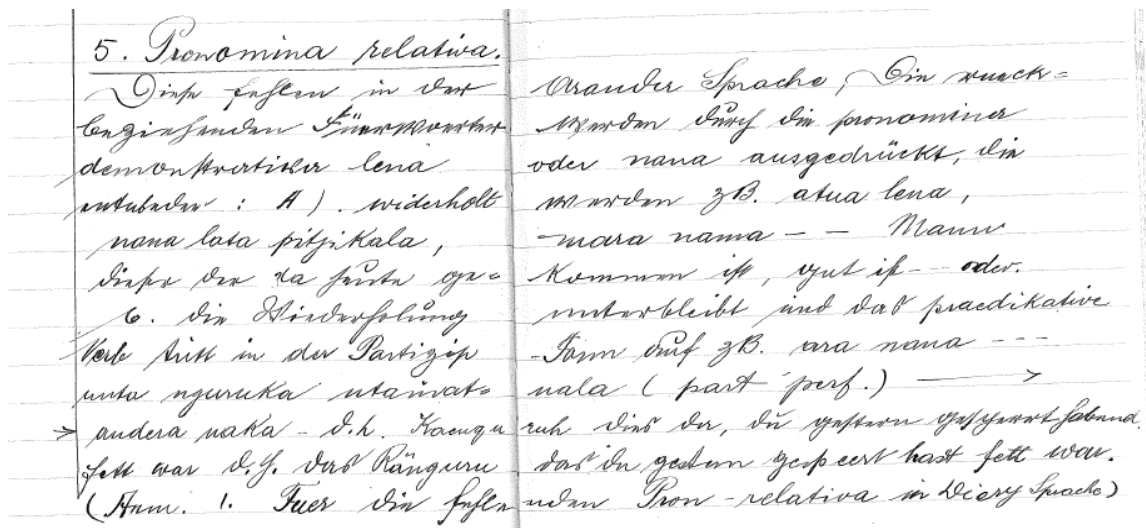 5. Pronomina relativa.
Diese fehlen in der Arander Sprache, Die rueck=
beziehenden Füerwoerter werden durch die pronomina
demonstrativa lena oder nana ausgedrückt, die
entweder : A). widerholt werden zB. atua lena,
nana lata pitjikala, mara nama - - Mann
dieser der da heute ge= kommen ist, gut ist - - oder.
6. die Wiederholung unterbleibt und das praedikative
Verb tritt in der Partizip -Form auf zB. ara nana - - -
unta nguruka nala (part perf.)
andera naka - d.h. Kaenguruh dies da, du gestern gesperrt habend,
fett war d.h. das Känguru das du gestern gespeert hast fett war.
(Anm. 1. Fuer die fehlenden Pron - relativa in Diery Sprache)